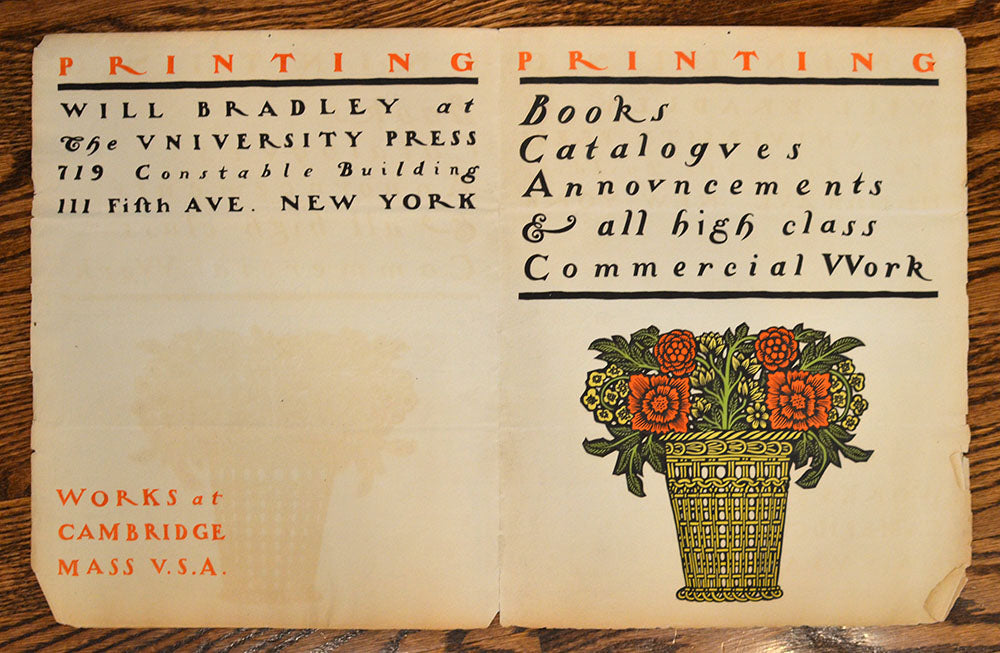 PRINTING
WILL BRADLEY at
The VNIVERSITY PRESS
719 Constable Building
111 Fifth AVE. NEW YORK
WORKS at
CAMBRIDGE
MASS V.S.A.
PRINTING
Books
Catalogves
Annovncements
& all high class
Commercial VVork